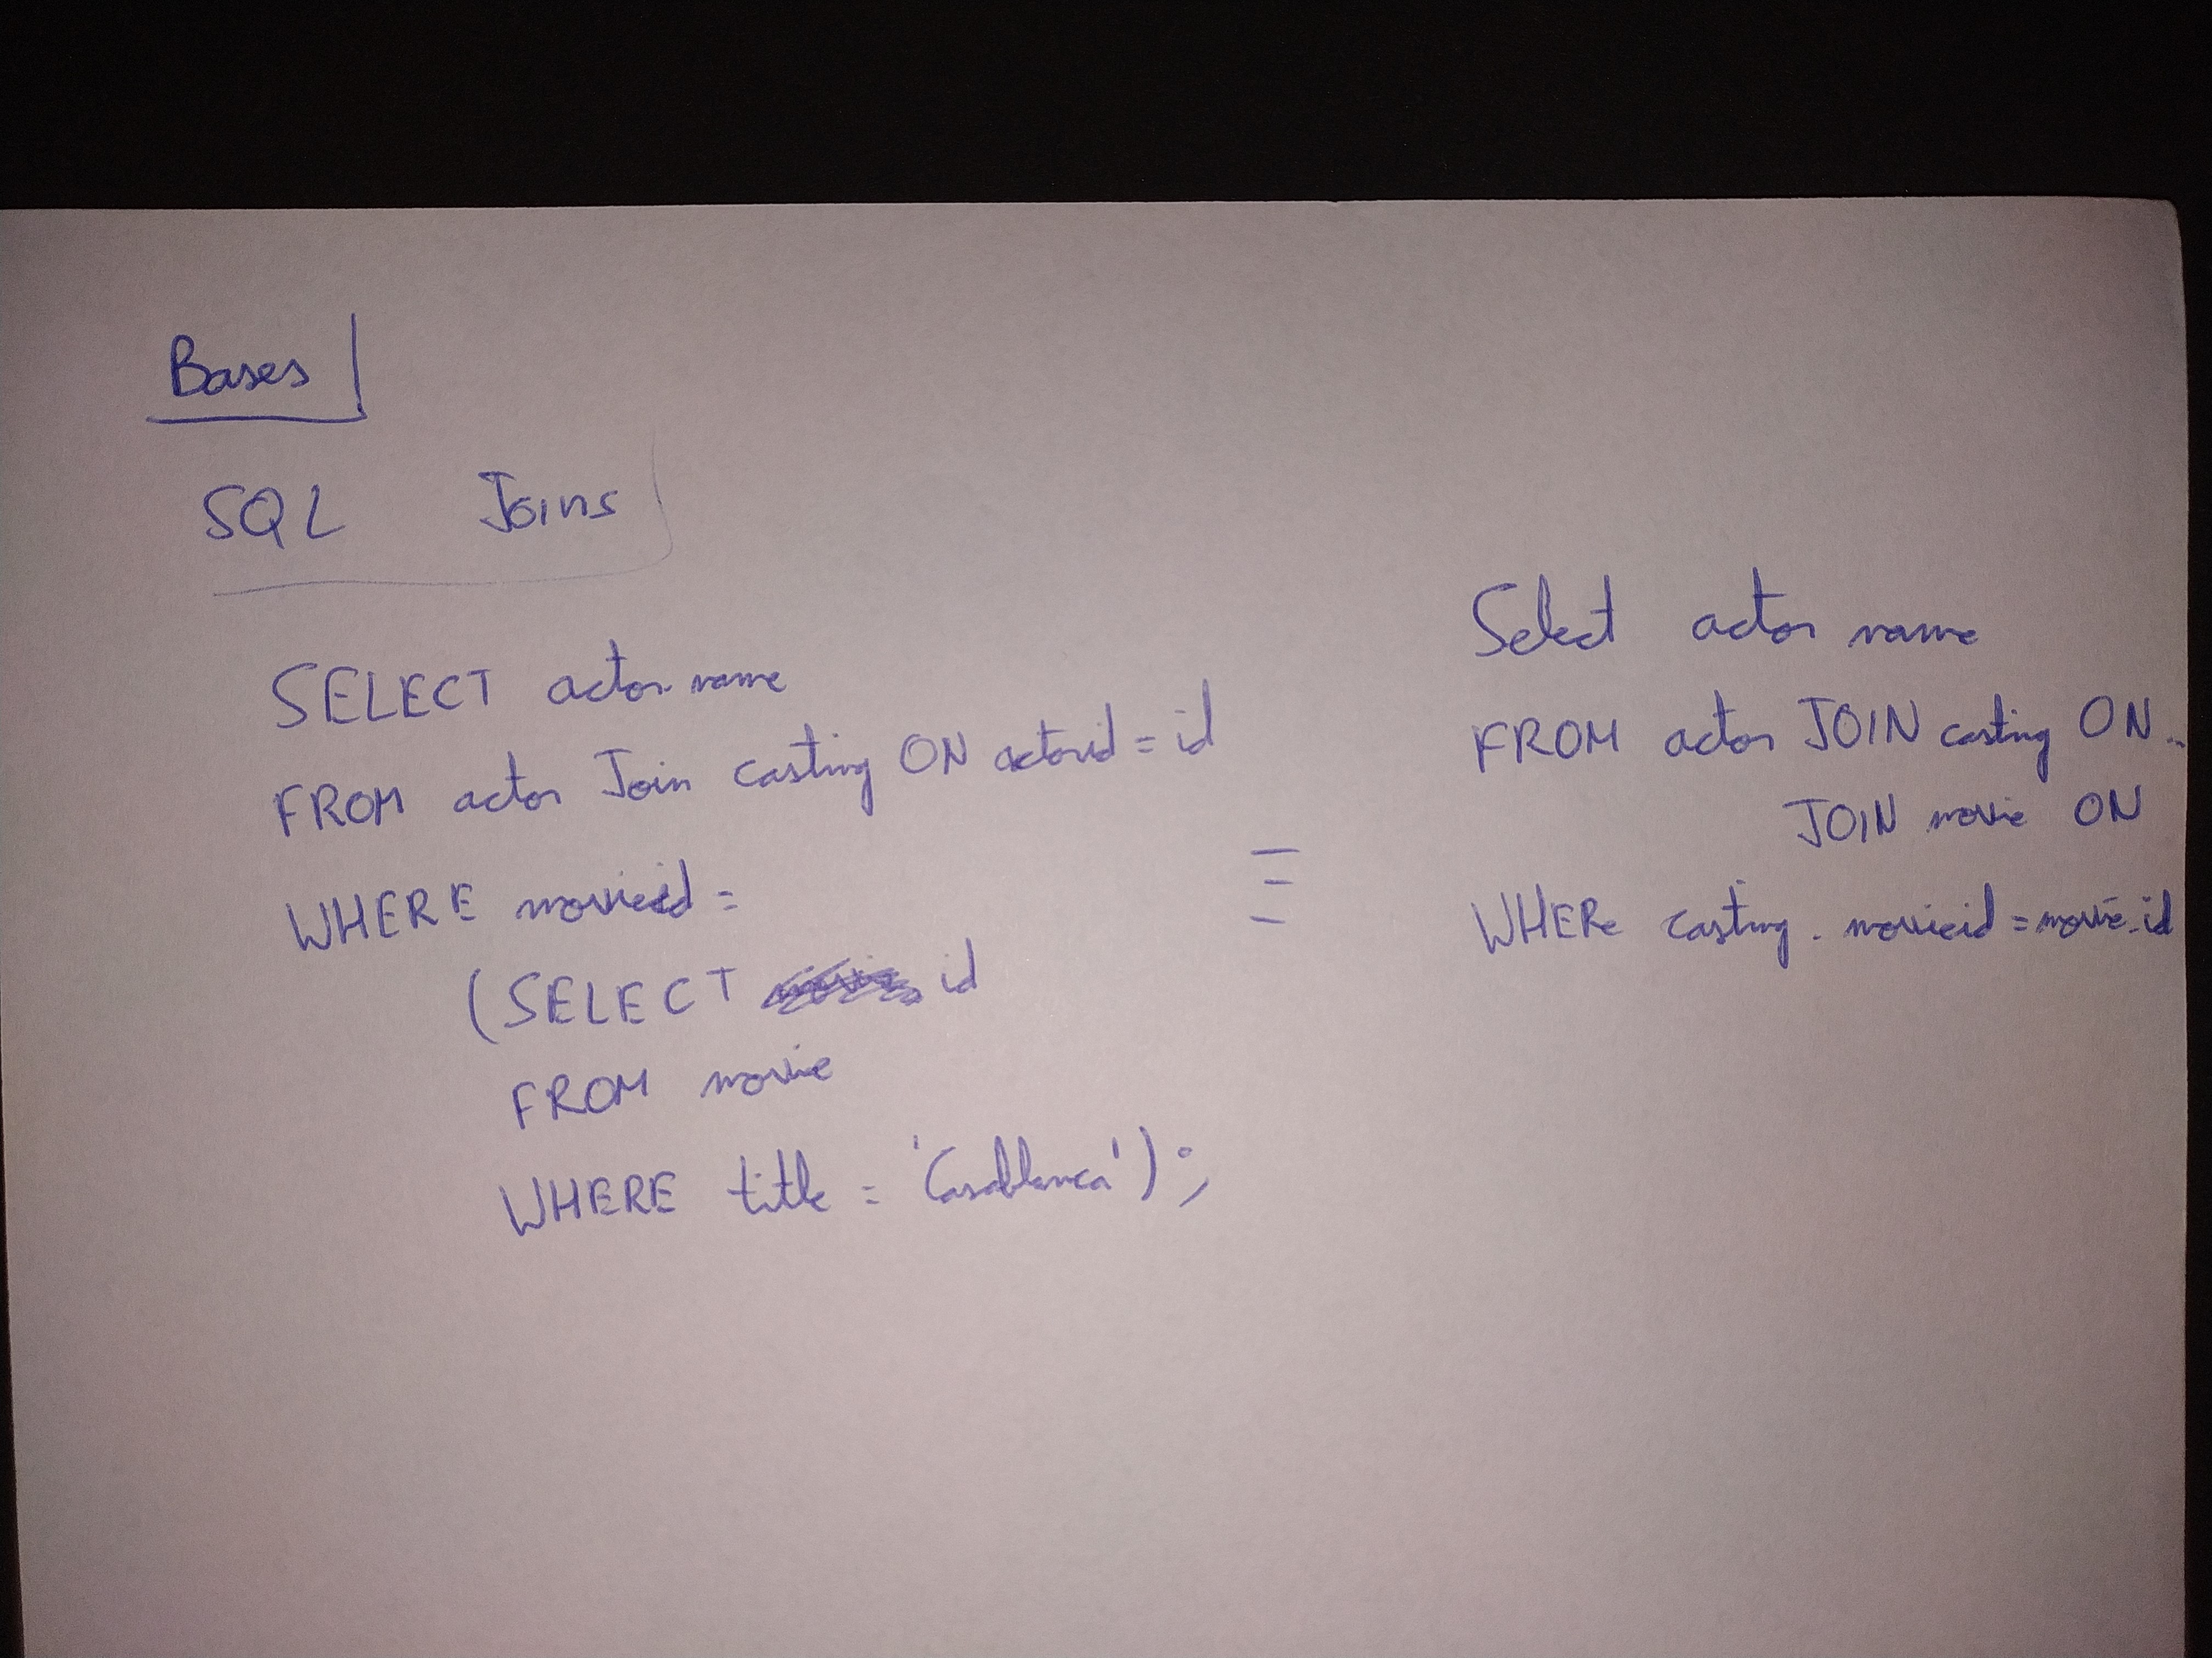 Bases
SQL Joins
SELECT actor.name
FROM actor Join casting ON actorid = id
WHERE movieid =
(SELECT id
FROM movie
WHERE title = 'Casablanca');
≡
Select actor name
FROM actor JOIN casting ON..
JOIN movie ON
WHERe casting . movieid = movie.id